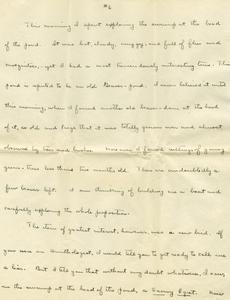 #6
This morning I spent exploring the swamp at the head
of the pond. It was hot, cloudy, muggy, and full of flies and
mosquitoes, yet I had a most tremendously interesting time. This
pond is reputed to be an old Beaver-pond. I soon believed it
this morning, when I found another old beaver-dam at the head
of it, so old and large that it was totally grown over and almost
obscured by trees and bushes. Near here I found cuttings of young
green trees less than two months old. There are undoubtedly a
few beaver left. I am thinking of building me a boat and
carefully exploring the whole proposition.
The item of greatest interest, however, was a new bird. If
you were an Ornithologist, I would tell you to get ready to call me
a liar. But I tell you that without any doubt whatsoever, I saw,
in the swamp at the head of the pond, a Snowy Egret. Never